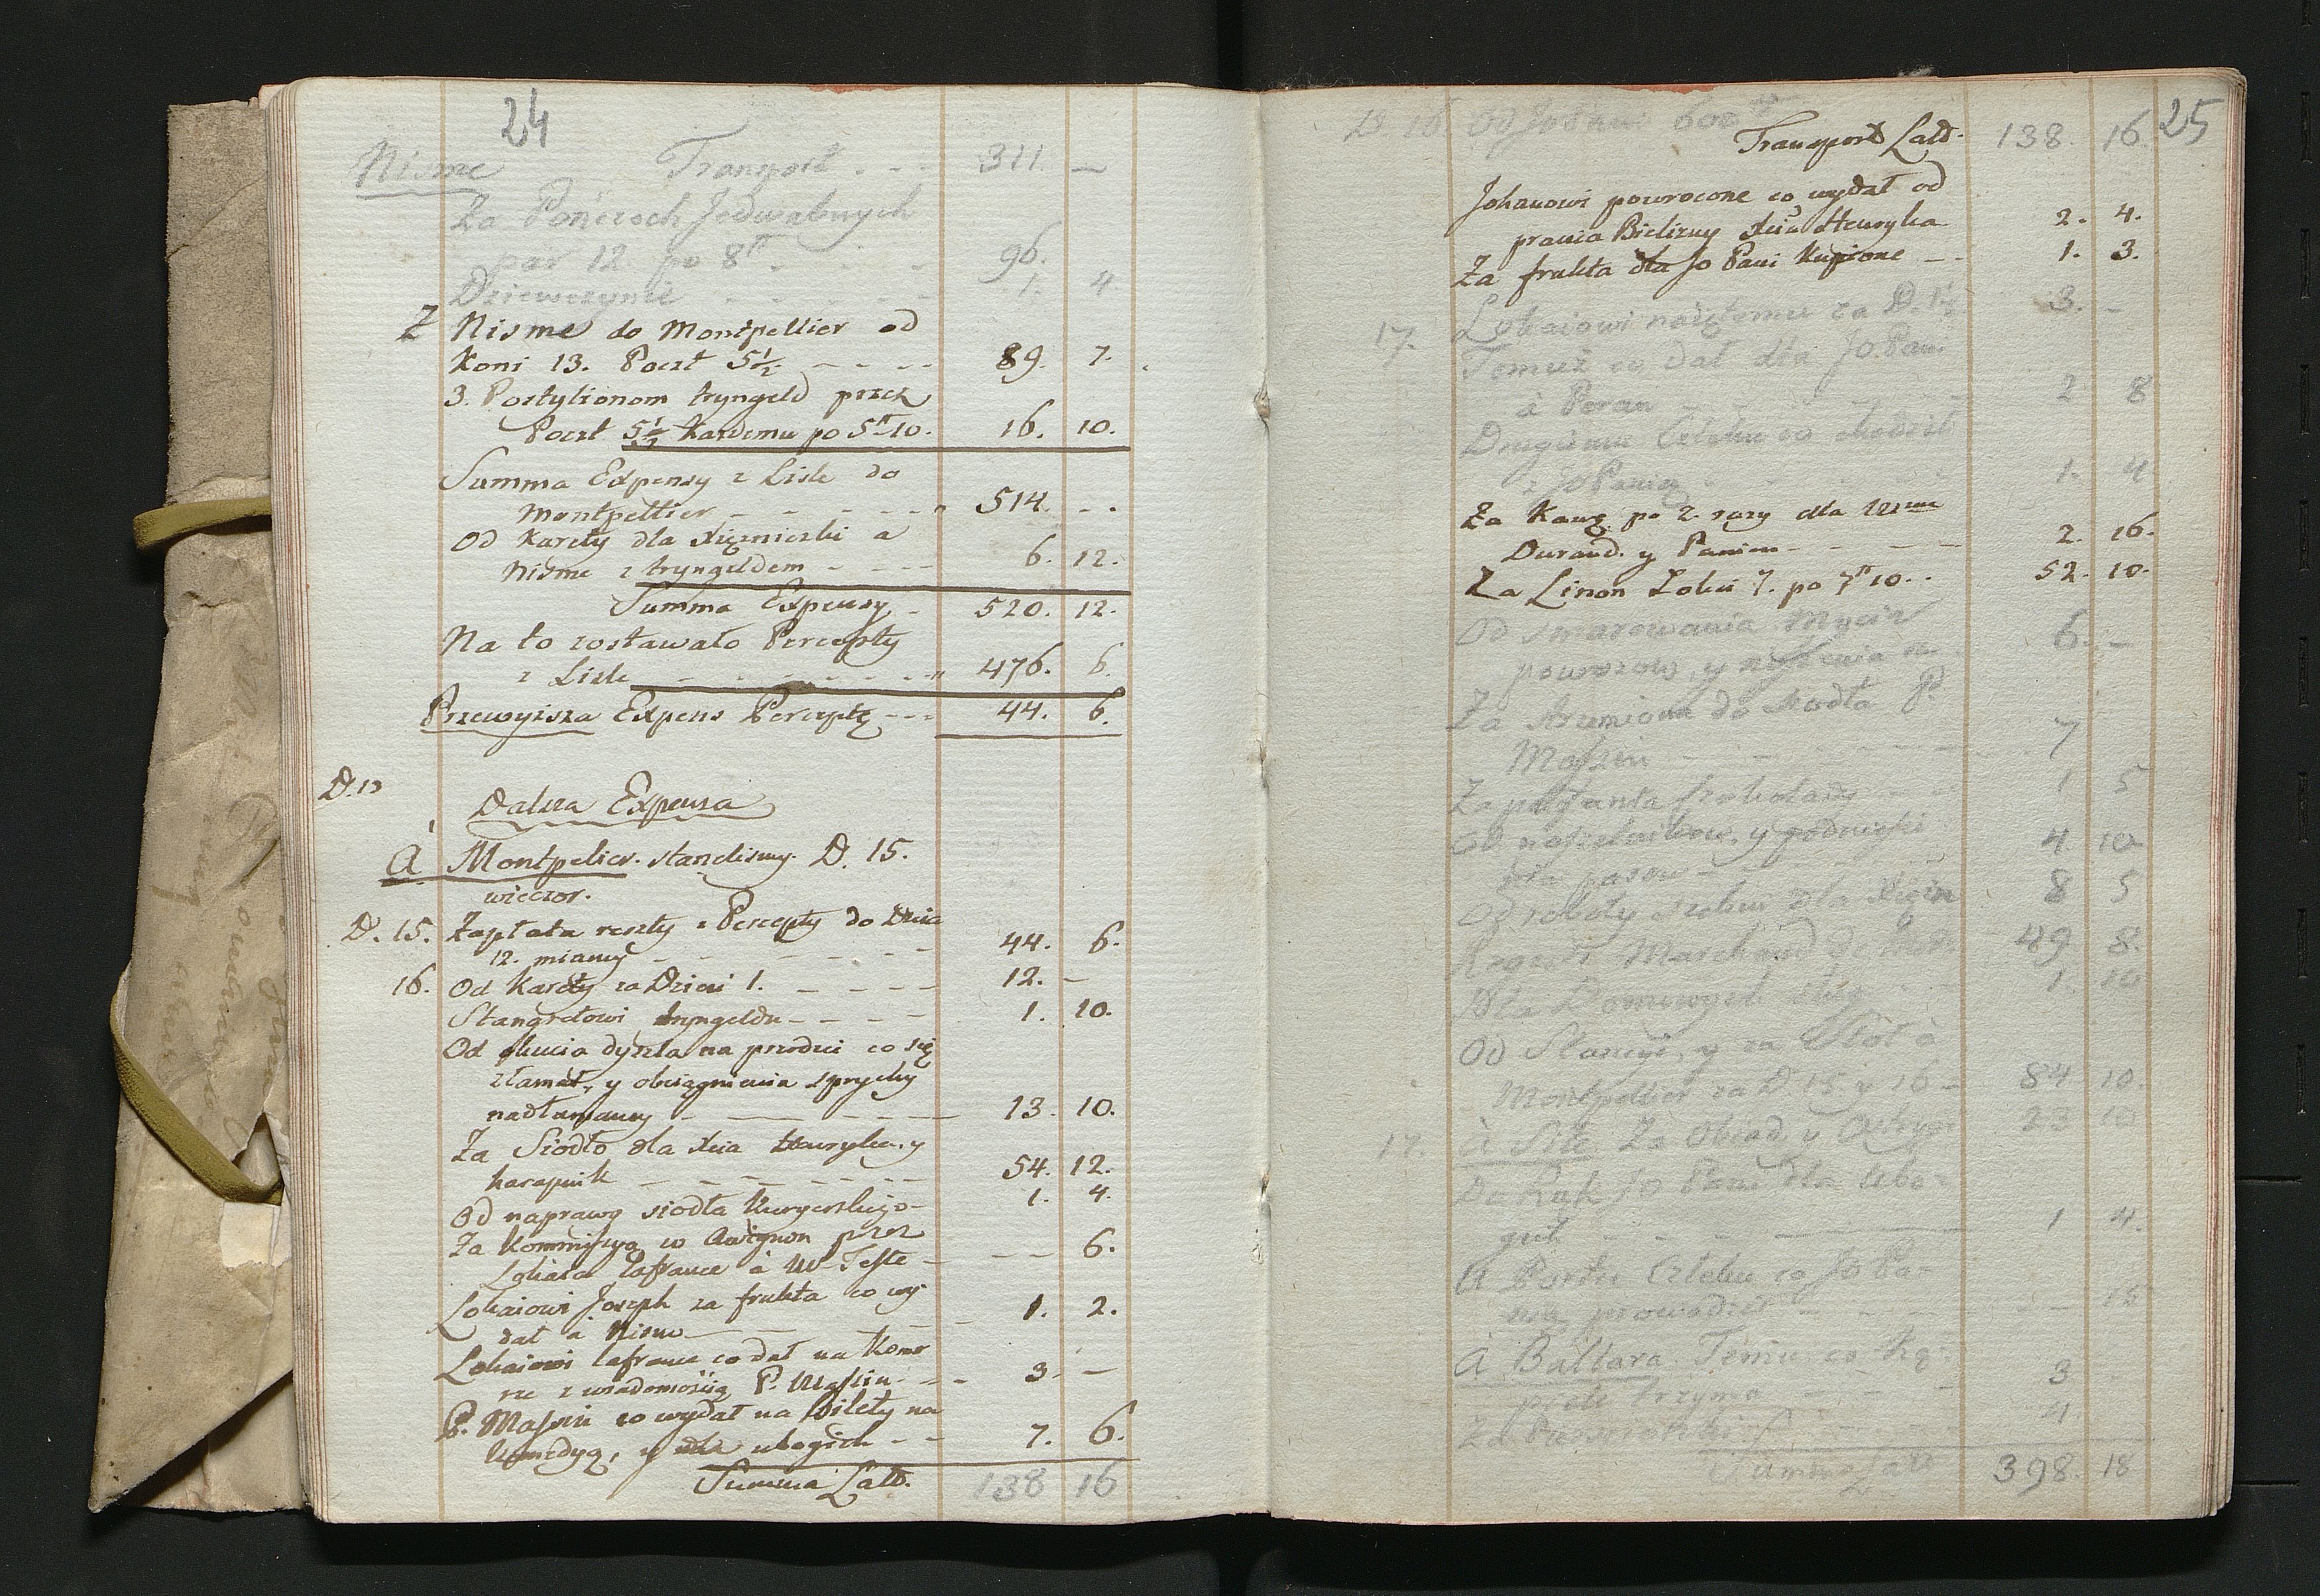 24
Nisme Transport - - - 311. —
Za Pończoch Jedwabnych
par 12 po 8tt - - - 96.
Dziewczynie - - - - - 1. 4
Z Nisme do Montpellier od
Koni 13. Poczt 5½ - - - - 89. 7.
3. Postylionom tryngeld przez
Poczt 5½ Kazdemu po 5tt 10. 16. 10.
Summa Expensy z Lisle do
Montpellier - - - - - - 514. - .
Od Karety dla Xięzniczki a
Nisme z tryngeldem - - - - 6. 12.
Summa Expensy - 520. 12.
Na to zostawało Percepty
z Lisle - - - - - - - 476. 6.
Przewyzsza Expens Perceptę - - - 44. 6.
D. 13
Dalsza Expensa
à Montpelier. stanelismy. D. 15.
wieczor.
D. 15. Zapłata reszty z Percepty do Dnia
12. mianey - - - - - - 44. 6.
16. Od Karety za Dzien 1. - - - - 12. —
Stangretowi tryngeldu - - - - 1. 10.
Od okucia dyszla na przodzi co się
złamał, y obciągnienia sprychy
nadłamaney - - - - - 13. 10.
Za Siodło dla Xcia Henryka, y
harapnik - - - - - - 54. 12.
Od naprawy siodła Kuryerskiego - 1. 4.
Za Kommissyą w Awignon przez
Lokaia lafrance à Mr Teste - — — 6.
Lokaiowi Joseph za frukta co wy
dał à Nisme - - - - 1. 2.
Lokaiowi lafrance co dał na Komo
rze z wiadomością P. Massin - - - 3. —
P. Massin co wydał na bilety na
Komedyą, y dla ubogich - - 7. 6.
Summa Lat. 138 16
25
D. 16. Od Jo Pani 600tt
Transport Lat. 138. 16.
Johanowi powrocone co wydał od
prania Bielizny Xcia Henryka 2. 4.
Za frukta dla Jo Pani Kupione - - 1. 3.
17. Lokaiowi naiętemu za D. 1½ 3. —
Temuż co dał dla Jo Pani
à Peran - - - 2 8
Drugiemu Człeku co chodził
z Jo Panią 1. 4
Za Kawę po 2. razy dla
Durand. y Panien - - - 2. 16.
Za Linon Łokci 7. po 7tt 10. - . 52. 10.
Od smarowania Mycia
powozow, y 6. —
Za Strzemiona do siodła P.
Massin - - - - 7
Za szokolady - - 1 5
Od y podnieści
dla - - 4 10
Od roboty dla Xięzn 8 5
Marchand de 49 8.
Dla Domowych sług 1. 10
Od Stancyi, y za Stoł à
Montpellier za D 15. y 16 - 84 10.
17. à Za Obiad y 23 10
Do Rąk Jo Pani dla Ubo-
gich - - - 1 4.
A Człeku co Jo Pa-
nią prowadził - - - 15
A Temu co Ką-
piele trzyma - - - 3 -
Za 4
Summa Lat. 398. 18